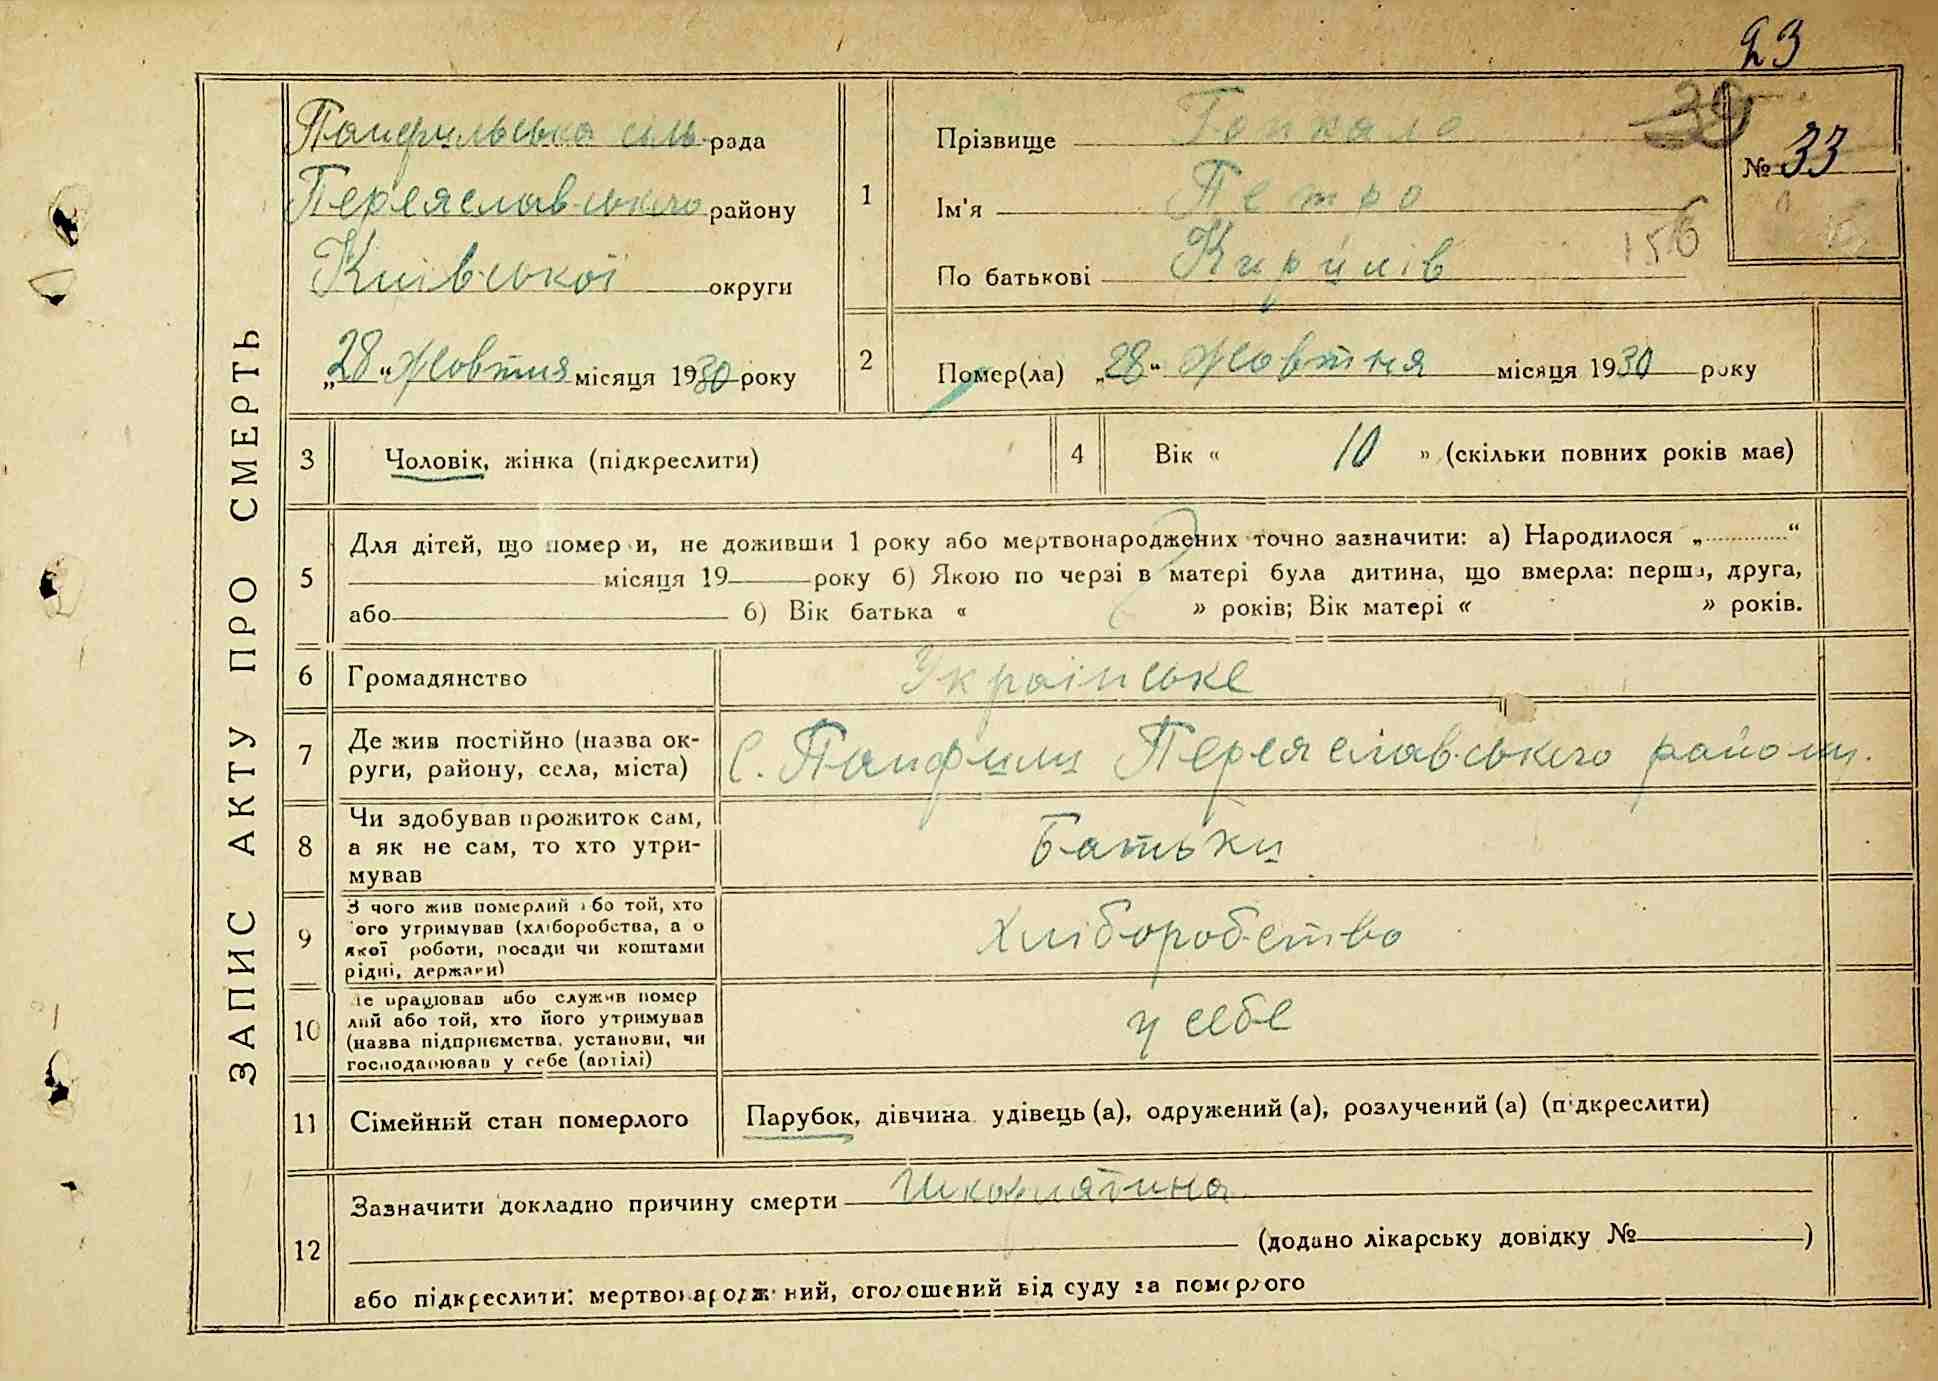 23
39
ЗАПИС АКТУ ПРО СМЕРТЬ
Панфильська сіль рада
Переяславського району
Київської округи
„28“ Жовтня місяця 1930 року
1
Прізвище Гопкало
Ім'я Петро
По батькові Кирилів
№ 33
156
2
Помер(ла) „28“ Жовтня місяця 1930 року
3
Чоловік, жінка (підкреслити)
4
Вік « 10 » (скільки повних років має)
5
Для дітей, що померли, не доживши 1 року або мертвонароджених точно зазначити: а) Народилося „ “
місяця 19 року б) Якою по черзі в матері була дитина, що вмерла: перша, друга,
або б) Вік батька « » років; Вік матері « » років.
6
Громадянство Українське
7
Де жив постійно (назва ок-
руги, району, села, міста)
С. Панфили Переяславського району.
8
Чи здобував прожиток сам,
а як не сам, то хто утри-
мував
Батьки
9
З чого жив померлий або той, хто
його утримував (хліборобства, а о
якої роботи, посади чи коштами
рідні, держави)
Хліборобство
10
Де працював або служив помер
лий або той, хто його утримував
(назва підприємства, установи, чи
господарював у себе (артілі)
у себе
11
Сімейний стан померлого
Парубок, дівчина удівець (а), одружений (а), розлучений (а) (підкреслити)
12
Зазначити докладно причину смерти Шкорлятина
(додано лікарську довідку № )
або підкреслити: мертвонароджений, оголошений від суду за померлого